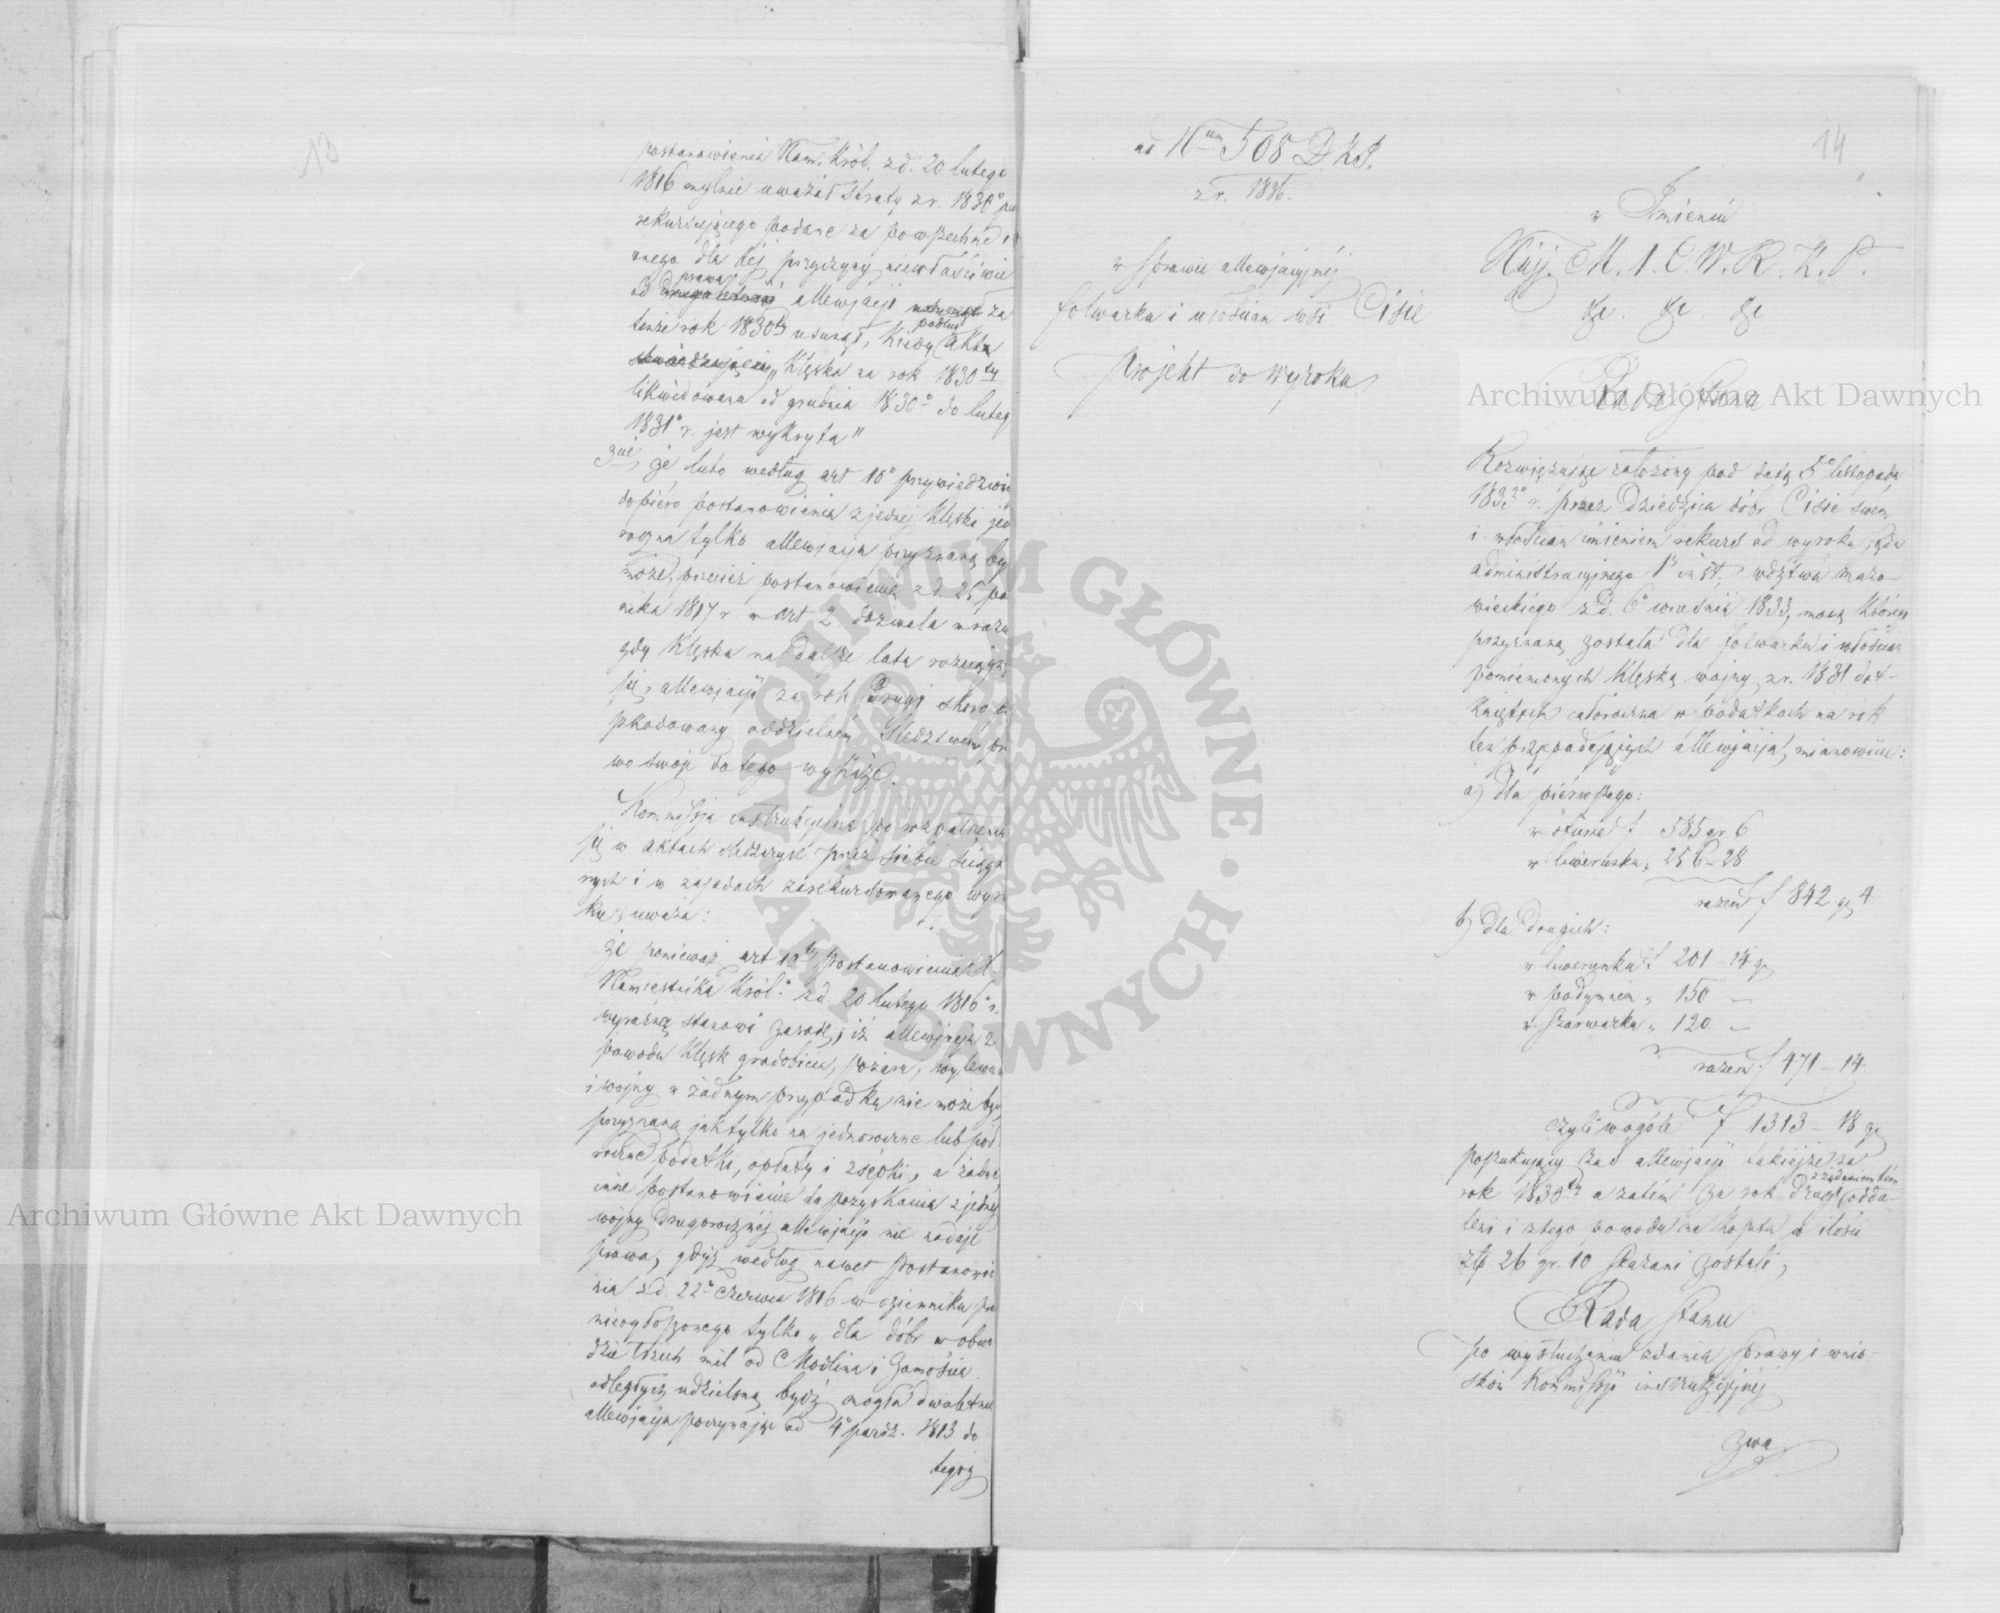 13
postanowienia Nam. Król. z d. 20 lutego
1816 mylnie uważał straty z r. 1830°
rekursującego podane za powszechne i
onego dla téj przyczyny niewłaściwie
od prawa allewjacji za
tenże rok 1830ty usunął, kiedy podług akta
„Klęska na rok 1830ty
likwidowana od grudnia 1830° do luteg
1831° r. jest wykryta"
3cie że lubo według art 10° przywiedzion
dopiéro postanowienia z jednéj klęski jed
roczna tylko allewjacja przyznaną by
może, przecież postanowienie z d. 25 pa
nika 1817 r. w art 2 dozwala w razie
gdy klęska na dalsze lata rozciąga
się, allewjacji za rok drugi skoro
szkodowany oddzielném śledztwem pr
wo swoje do tego wykaże.
Kommissja instrukcyjna po rozpatrzeniu
się w aktach śledczych przez siebie ściągn
nych i w zasadach zarekursowanego wyro
ku, uważa:
że ponieważ art 10ty Postanowienia X.
Namiestnika Król.° z d. 20 lutego 1816° r.
wyraźnę stanowi zasadę, iż allewjacja z
powodu klęsk gradobicia, pożaru, wylewu
i wojny w żadnym przypadku nie może być
przyznaną jak tylko na jednoroczne lub pół
roczne podatki, opłaty i zsépki, a żadne
inne postanowienie do pozyskania z jednéj
wojny drugorocznéj allewjacji nie nadaje
prawa, gdyż według nawet postanowie
nia z d. 22° czerwca 1816 w dzienniku pra
nieogłoszonego tylko „dla dóbr w obwo
dzie trzech mil od Modlina i Zamościa
odległych udzieloną bydź mogła dwuletnia
allewjacja poczynając od 4° paźdz. 1813 do
tegoż
14
ad Num 508 D.K.I.
z r. 1836.
w sprawie allewjacyjnéj
folwarku i włościan wsi Cisie
Projekt do wyroku
w Imieniu
Najj. M. I. C. W. R. K. P.
&c. &c. &c
Rada Stanu
Rozwiązując założony pod datą 5° listopada
1833° r. przez Dziedzica dóbr Cisie swém
i włościan imieniem rekurs od wyroku sądu
administracyjnego 1ej inst. wdztwa mazo-
wieckiego z d. 6° września 1833, mocą którego
przyznaną została dla folwarku i włościan
pomienionych klęską wojny z r. 1831 dot-
kniętych całoroczna w podatkach na rok
ten przypadających allewjacja, mianowicie:
a) dla piérwszego:
w ofierze f 585 gr 6
w liwerunku „ 256 – 28
razem f 842 gr 4
b) dla drugich:
w liwerunku f 201 – 14 gr
w podymném „ 150 –
w szarwarku „ 120 –
razem f 471 – 14
czyli wogóle f 1313 – 18 gr
poszukujący zaś allewjacji takiejże za
rok 1830ty a zatém za rok drugi z żądaniem tém odda-
leni i z tego powodu na koszta w ilości
złp 26 gr. 10 skazani zostali,
Rada Stanu
Po wysłuchaniu zdania sprawy i wnio-
sków Kommissji instrukcyjnéj
zwa
Archiwum Główne Akt Dawnych
Archiwum Główne Akt Dawnych
ARCHIWUM GŁÓWNE AKT DAWNYCH